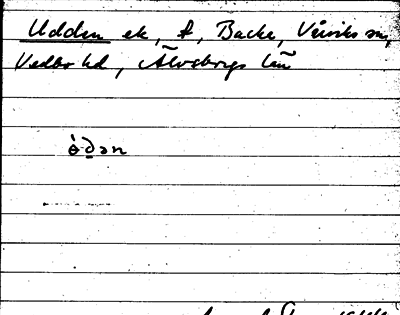 Udden ek, f, Backe, Värviks sn,
Vedbo hd, Älvsborgs län
ò̱dən